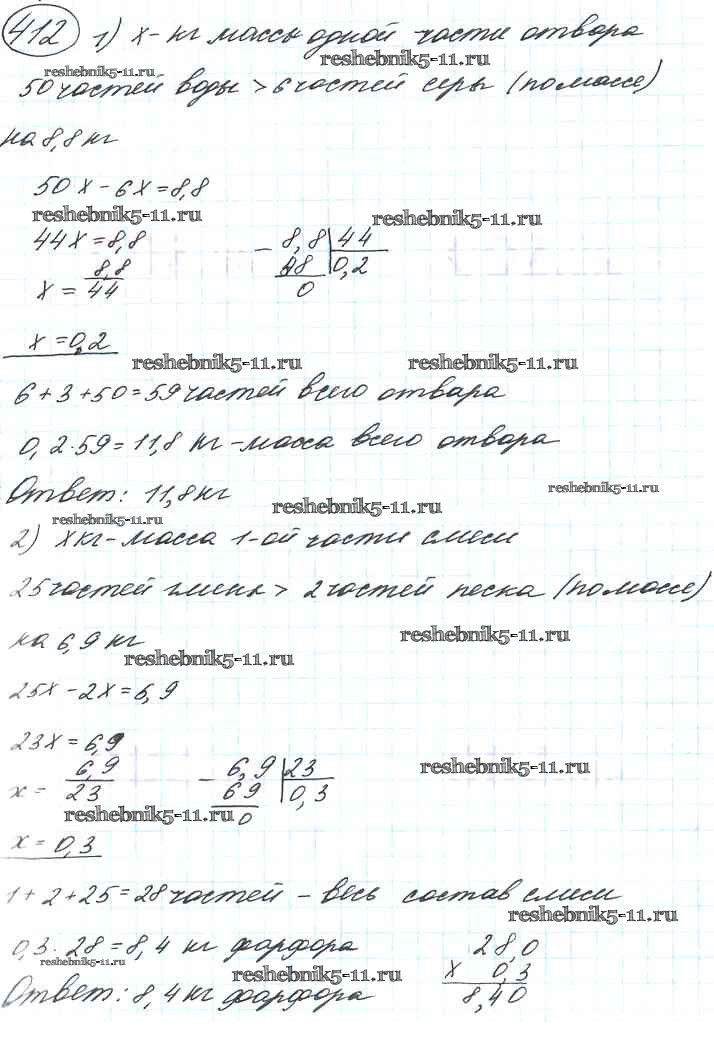 412 1) x - кг массы одной части отвара
reshebnik5-11.ru reshebnik5-11.ru
50 частей воды > 6 частей серы (по массе)
на 8,8 кг
50x - 6x = 8,8
reshebnik5-11.ru reshebnik5-11.ru
44x = 8,8 - 8,8 | 44
x = 8,8/44 88 0,2
0
x = 0,2
reshebnik5-11.ru reshebnik5-11.ru
6 + 3 + 50 = 59 частей всего отвара
0,2 · 59 = 11,8 кг - масса всего отвара
Ответ: 11,8 кг
reshebnik5-11.ru reshebnik5-11.ru reshebnik5-11.ru
2) x кг - масса 1-ой части смеси
25 частей глины > 2 частей песка (по массе)
на 6,9 кг
reshebnik5-11.ru reshebnik5-11.ru
25x - 2x = 6,9
23x = 6,9
x = 6,9/23 - 6,9 | 23
69 0,3
0
reshebnik5-11.ru reshebnik5-11.ru
x = 0,3
1 + 2 + 25 = 28 частей - весь состав смеси
reshebnik5-11.ru
0,3 · 28 = 8,4 кг фарфора 28,0
reshebnik5-11.ru reshebnik5-11.ru x 0,3
Ответ: 8,4 кг фарфора 8,40